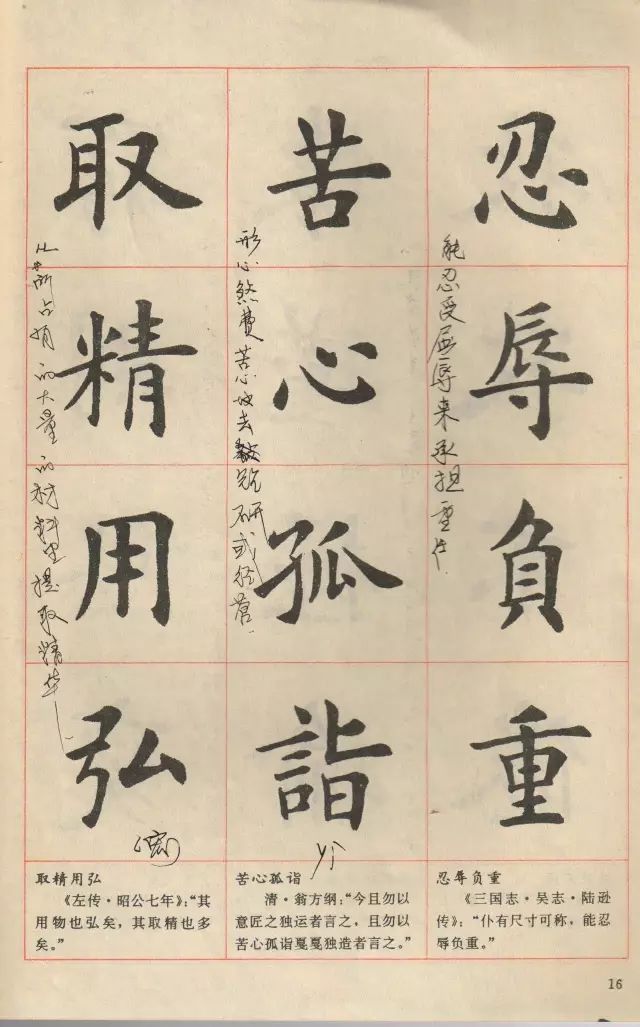 忍辱負重
能忍受屈辱来承担重任.
苦心孤詣
煞费苦心地去钻研或经营.
yì
取精用弘
从所占有的大量的材料里提取精华
(宏)
忍辱负重
《三国志·吴志·陆逊
传》：“仆有尺寸可称，能忍
辱负重。”
苦心孤诣
清·翁方纲：“今且勿以
意匠之独运者言之，且勿以
苦心孤诣戛戛独造者言之。”
取精用弘
《左传·昭公七年》：“其
用物也弘矣，其取精也多
矣。”
16